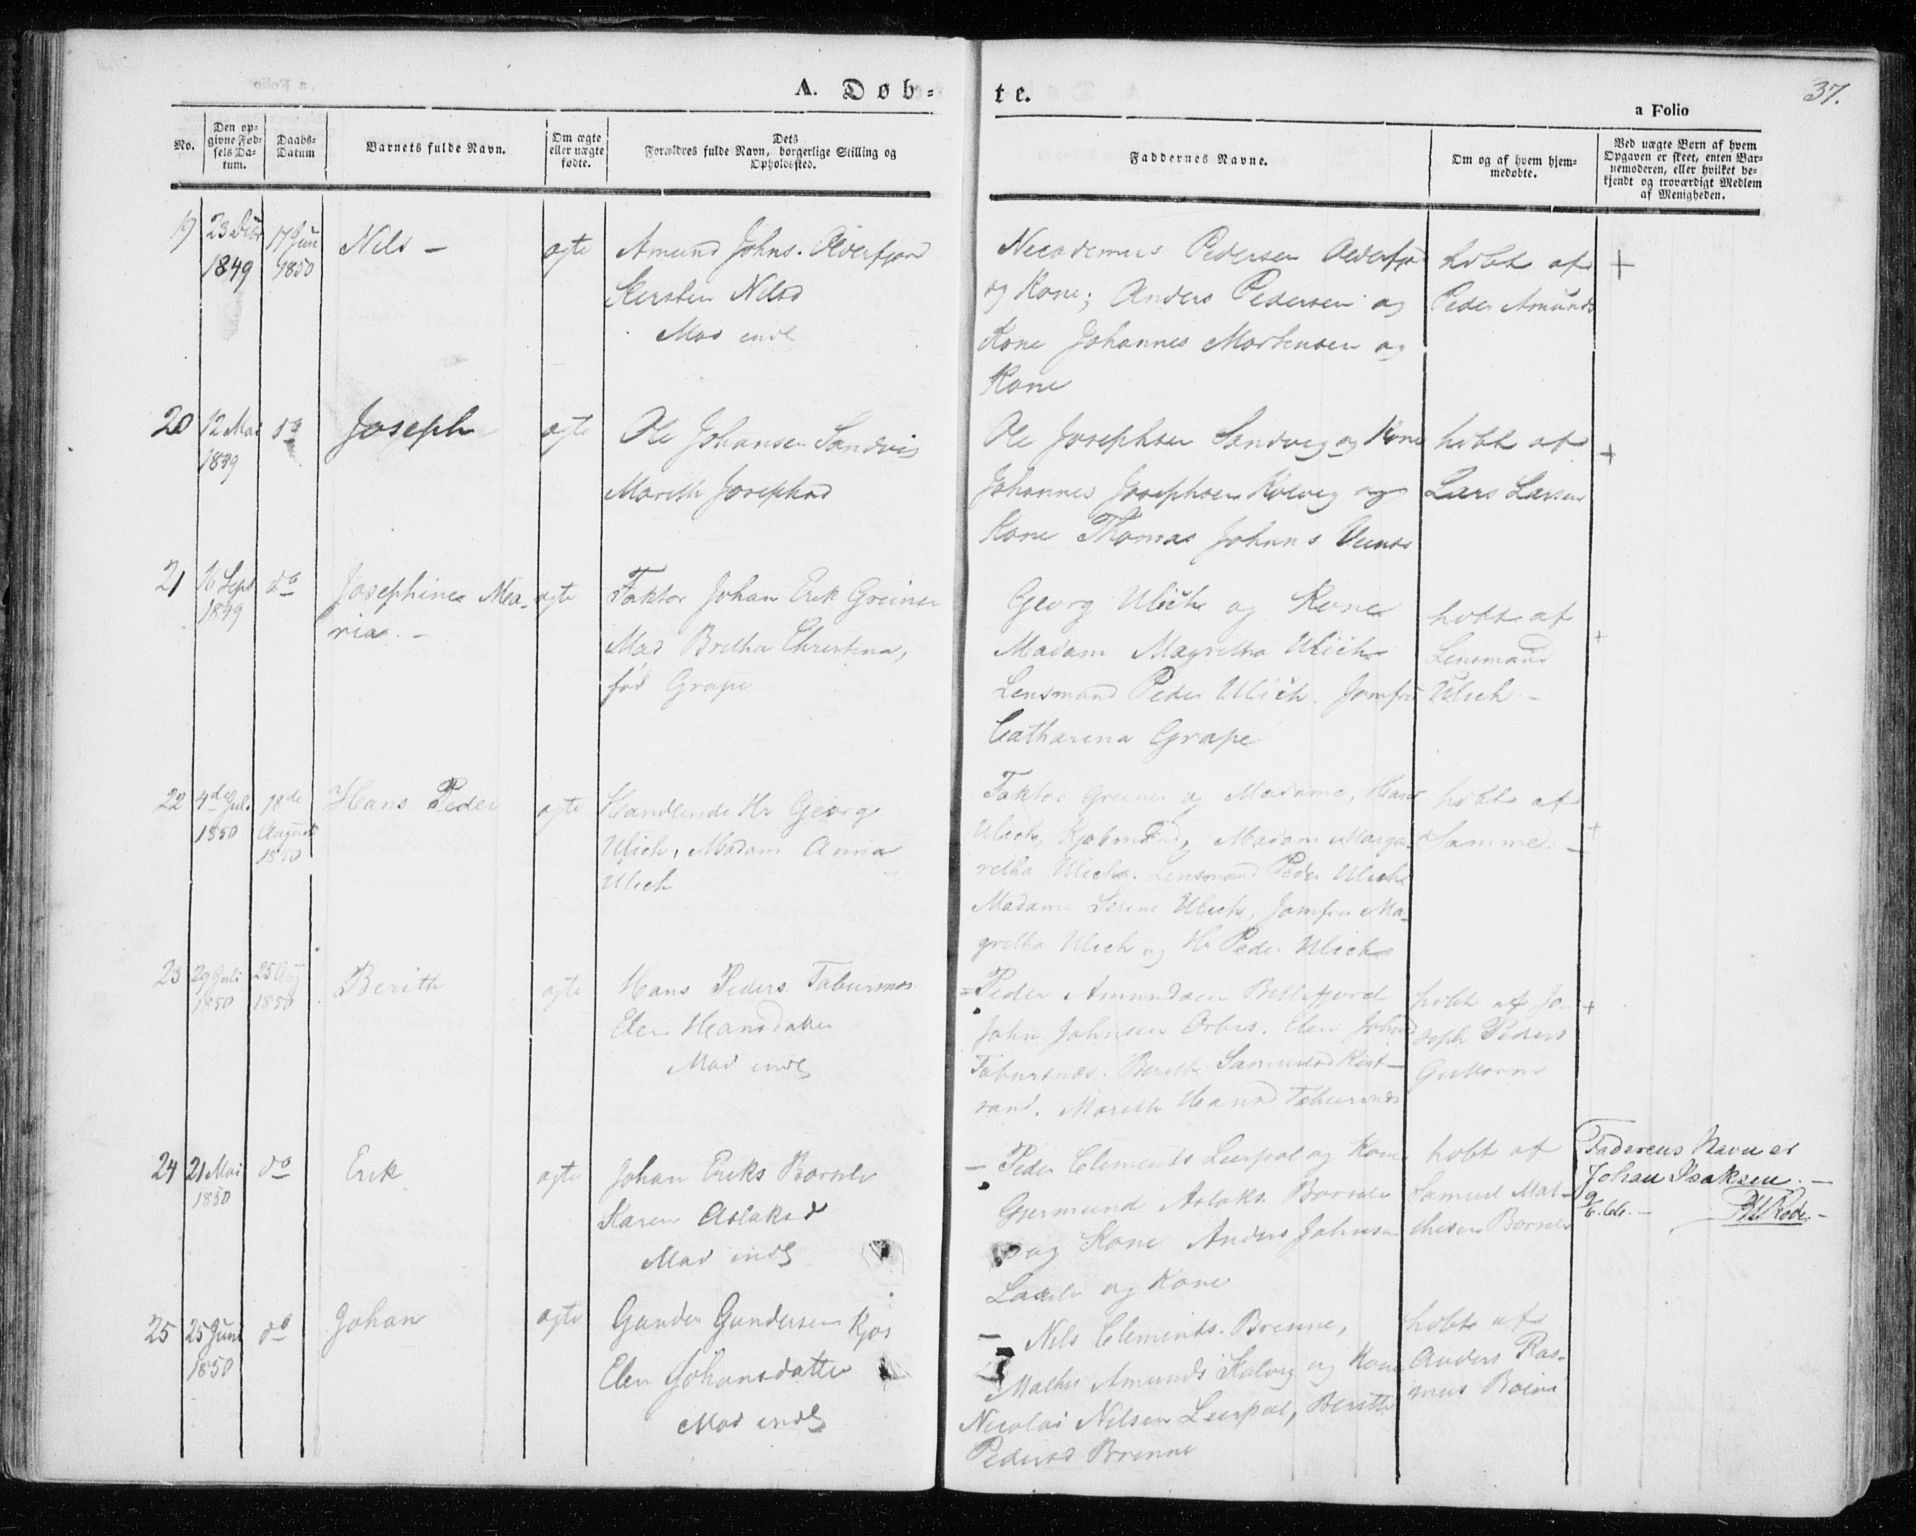 37.
A. Døb=
te.
a Folio
No.
Den op-
givne Fød-
sels Da-
tum.
Daabs-
Datum
Barnets fulde Navn.
Om ægte
eller uægte
fødte.
Dets
Forældres fulde Navn, borgerlige Stilling og
Opholdssted.
Faddernes Navne.
Om og af hvem hjem-
medøbte.
Ved uægte Børn af hvem
Opgaven er skeet, enten Bar-
nemoderen, eller hvilket be-
kjendt og troværdigt Medlem
af Menigheden.
19
1849
1850
Nils -
ægte
Amund Johns.
Kersten Nilsd
Mad indl
Pedersen
og Kone; Anders Pedersen og
Kone Johannes Mortensen og
Kone
hdbt af
Peder Amunds
+
20
12 Mai
1849
do
Joseph
ægte
Ole Johansen Sandvig
Marith Josephsd
Ole Josephsen Sandvig og Kone
Johannes Josephsen Kolvig og
Kone Thomas Johns
hdbt af
Lars Larsen
+
21
16 Sept
1849
do
Josephine Ma-
ria. -
ægte
Faktor Johan Erik Greiner
Mad Britha Christina,
fød Grape
Georg Ulich og Kone
Madam Magretha Ulich
Lensmand Peder Ulich. Jomfru
Catharina Grape
hdbt af
Lensmand
Ulich. -
+
22
4de Jul.
1850
18de
August
1850
Hans Peder
ægte
Handlende Hr George
Ulich, Madam Anna
Ulich
Faktor Greiner og Madame, Hans
Ulich, Kjøbmand, Madam Marga-
retha Ulich. Lensmand Peder Ulich
Madame Serine Ulich, Jomfru Ma-
gretha Ulich og Hr Peder Ulich
hdbt af
Samme. -
+
23
29 Juli
1850
25 Aug
1850
Berith
ægte
Hans Peders. Taburnæs
Elen Hansdatter
Mad indl
= Peder Amundsen Billefjord
John Johnsen Elen Johnsd
Taburnæs. Berith Samuelsd Kist-
rand. Marith Hansd Taburnæs
hdbt af Jo-
seph Peders
+
24
21 Mai
1850
do
Erik
ægte
Johan Eriks Børselv
Karen Aslaksd
Mad indl
- Peder Clements Leirpol og Kone
Gjermund Aslaks. Børselv
og Kone Anders Johnsen
Laxelv og Kone
hdbt af
Samuel Mat-
thisen Børselv
Faderens Navn er
Johan Isaksen. -
25
25 Juni
1850
do
Johan
ægte
Gunder Gundersen Kjæs
Elen Johansdatter
Mad indl
- Nils Clements. Brenne,
Mathis Amunds Kolvig og Kone
Nicolai Nilsen Leirpol, Berith
Pedersd Brenne
hdbt af
Anders Ras-
mus